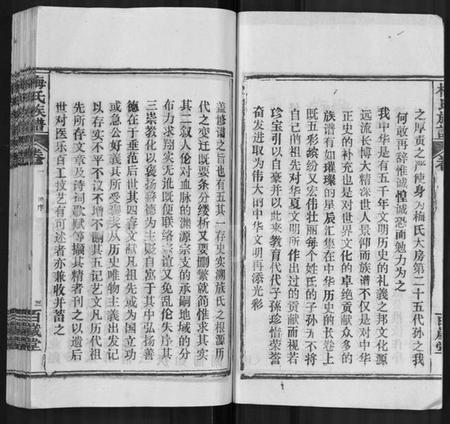 之厚责之严使身为梅氏大房第二十五代孙之我
何敢再辞惟诚惶诚恐而勉力为之
我中华是有五千年文明历史的礼义之邦文化源
远流长博大精深世人景仰而族谱不仅是对中华
正史的补充也是对世界文化的卓绝贡献众多的
族谱有如璀璨的星辰汇集在中华历史的长卷上
既五彩缤纷又宏伟壮丽每个姓氏的子孙无不将
自己的祖先对华夏文明所作出过的贡献而视若
珍宝引以自豪并以此来教育代代子孙珍怡荣誉
奋发进取为伟大的中华文明再添光彩
梅氏族谱
卷首
百岁堂
盖修谱之旨也有五其一存史实溯族氏之根源历
代之变迁既要条分缕析又要删繁就简惟求其实
其二叙人伦对血脉的渊源宗支的承嗣地域的分
布力求翔实无讹既便联络宗谊又免乱伦失序其
三崇教化以褒扬善德为主彰自富于其中弘扬善
德在于垂范后世其四存文献凡祖先或为国立功
或急公好义其所受褒奖从历史唯物主义出发记
以存实不平不议不增不谕其五记艺文凡历代祖
先所存文章及诗词歌赋等撷其精者刊之以遗后
世对医乐百工技艺有可述者亦兼收并蓄之
梅氏族谱
卷首
序
百岁堂